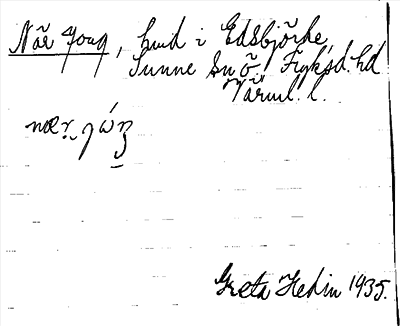 När Jong, hmd i Edsbjörke
Sunne sn ö. Fryksd. hd
Värml. l.
Greta Hedin 1935.